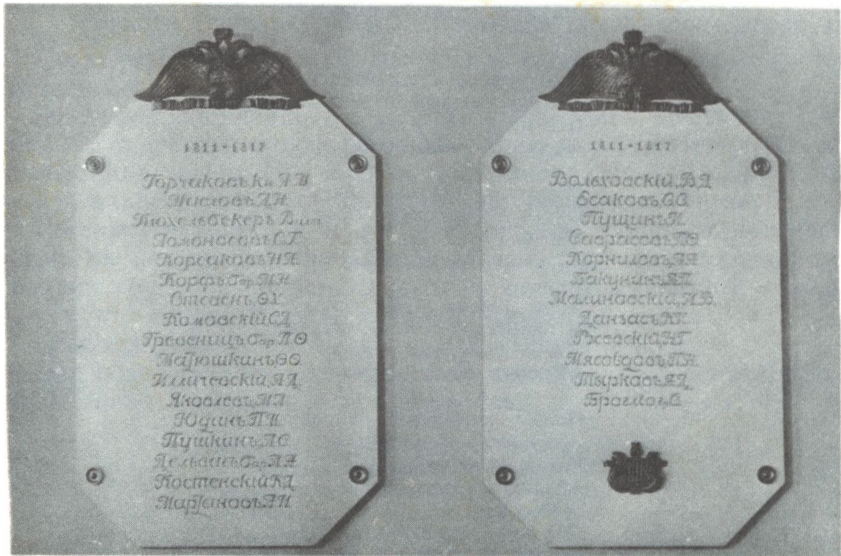 1811-1817
Горчаковъ Кн. А.М
Масловъ Д.Н.
Кюхельбекеръ Вил.
Ломоносовъ С.Г
Корсаковъ Н.А.
Корфъ бар. М.Н.
Стевенъ Ѳ.Х.
Комовскій С.Д.
Гревеницъ бар. П.Ѳ
Матюшкинъ Ѳ.Ѳ.
Илличевскій А.Д.
Яковлевъ М.Л
Юдинъ П.М.
Пушкинъ А.С
Дельвигъ бар. А.А
Костенскій К.Д.
Мартыновъ А.И
1811-1817
Вольховскій, В.Д.
Есаковъ С.С.
Пущинъ И.
Саврасовъ П.Ѳ.
Корниловъ А.А
Бакунинъ А.П.
Малиновскій, И.В.
Данзасъ К.К.
Ржевскій Н.Г
Мясоѣдовъ П.Н.
Тырковъ А.Д.
Брогліо С.